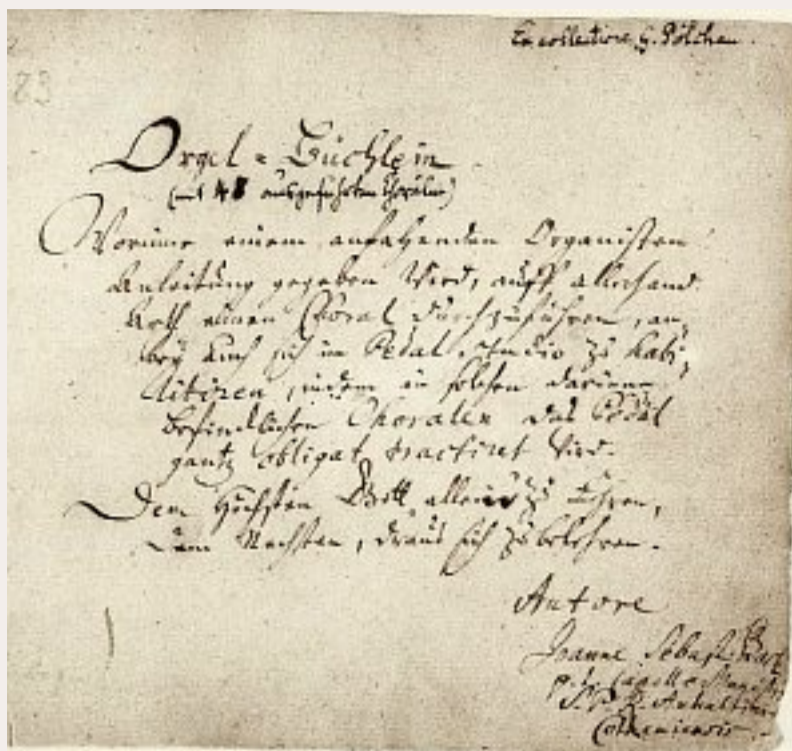 Ex collectione G. Pölchau.
83
Orgel=Büchlein
(mit 48 ausgeführten Chorälen)
Worinne einem anfahenden Organisten
Anleitung gegeben wird, auff allerhand
Arth einen Choral durchzuführen, an-
bey auch sich im Pedal studio zu habi-
litiren, indem in solchen darinne
befindlichen Choralen das Pedal
gantz obligat tractiret wird.
Dem Höchsten Gott allein zu Ehren,
Dem Nechsten, draus sich zu belehren.
Autore
Joanne Sebast. Bach
p. t. Capellæ Magistri
S. P. R. Anhaltini-
Cotheniensis.